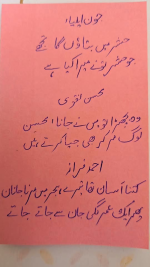 جون ایلیا:
حشر میں بتاؤں گا تجھے
جو حشر تونے میرا کیا ہے
محسن نقوی
وہ بچھڑا تو میں نے جانا محسن
لوگ مر کر بھی جیا کرتے ہیں
احمد فراز
کتنا آساں تھا تیرے ہجر میں مرنا جاناں
پھر بھی اک عمر لگی جان سے جاتے جاتے